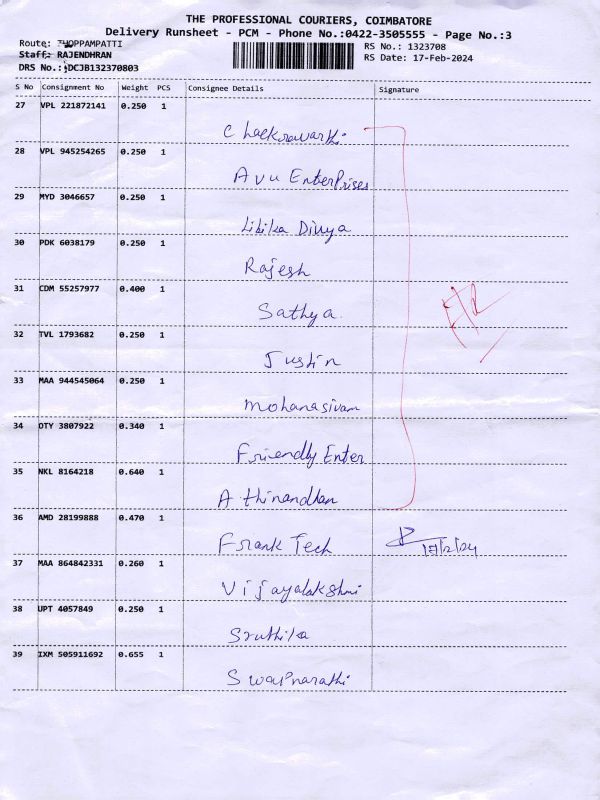 THE PROFESSIONAL COURIERS, COIMBATORE
Delivery Runsheet - PCM - Phone No.:0422-3505555 - Page No.:3
Route: THOPPAMPATTI
Staff: RAJENDHRAN
DRS No.: DCJB132370803
RS No.: 1323708
RS Date: 17-Feb-2024
S No Consignment No Weight PCS Consignee Details Signature
27 VPL 221872141 0.250 1
Chackrawarthi
28 VPL 945254265 0.250 1
Avu EnterPrises
29 MYD 3046657 0.250 1
Likika Divya
30 PDK 6038179 0.250 1
Rajesh
31 CDM 55257977 0.400 1
Sathya.
32 TVL 1793682 0.250 1
Justin
33 MAA 944545064 0.250 1
Mohanasivam
34 OTY 3807922 0.340 1
Friendly Enter
35 NKL 8164218 0.640 1
Athinandhan
36 AMD 28199888 0.470 1
Frank Tech 17/2/24
37 MAA 864842331 0.260 1
Vijayalakshmi
38 UPT 4057849 0.250 1
Sruthika
39 IXM 505911692 0.655 1
Swapnarathi